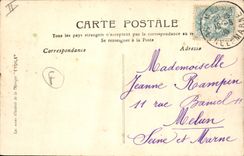 CARTE POSTALE
Tous les pays étrangers n'acceptent pas la correspondance au recto
Se renseigner à la Poste
Correspondance
Adresse
Mademoiselle
Jeanne Rampin
11 rue
Melun
Seine et Marne